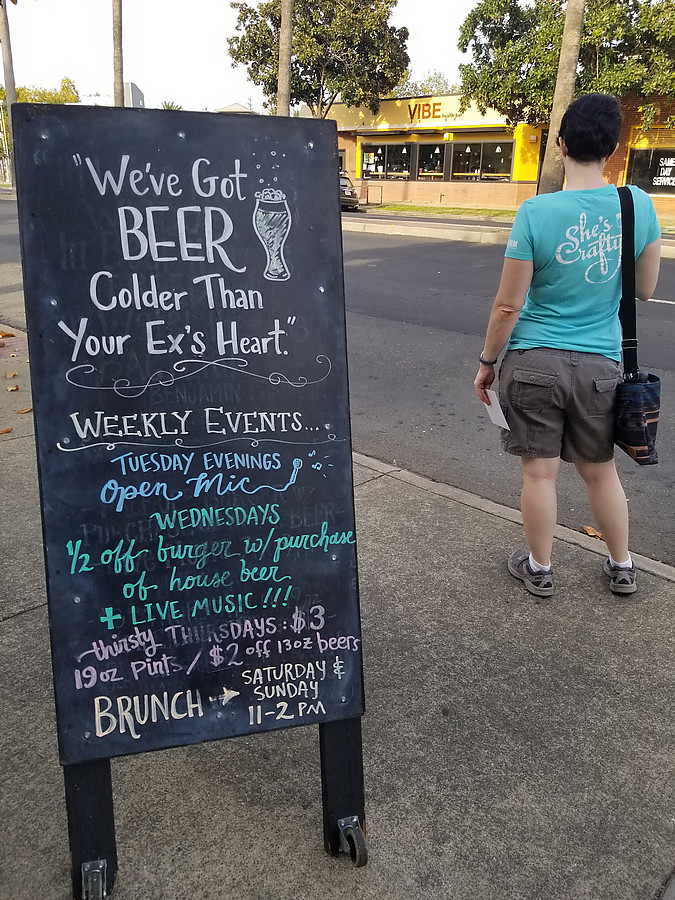 "We've Got
BEER
Colder Than
Your Ex's Heart."
WEEKLY EVENTS...
TUESDAY EVENINGS
Open Mic
WEDNESDAYS
1/2 off burger w/purchase
of house beer
+ LIVE MUSIC!!!
thirsty THURSDAYS: $3
19oz pints / $2 off 13oz beers
BRUNCH → SATURDAY &
SUNDAY
11-2 PM
VIBE health bar
SAME
DAY
SERVICE
She's
Crafty